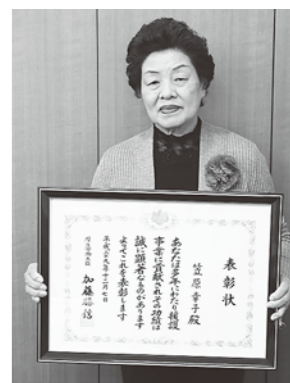 表彰状
笠原幸子殿
あなたは多年にわたり援護
事業に貢献されその功績は
誠に顕著なものがあります
よってこれを表彰します
平成二十九年十二月七日
厚生労働大臣 加藤勝信